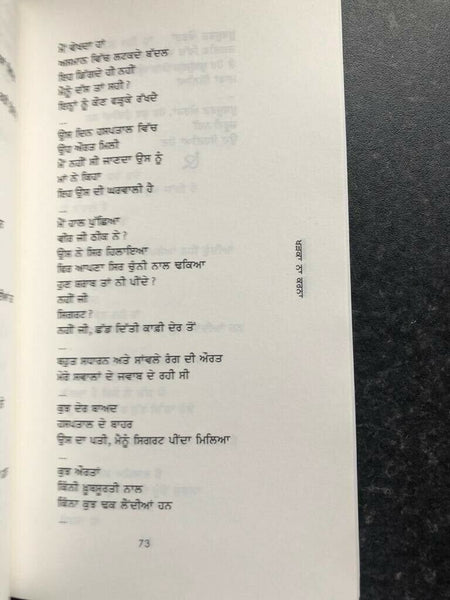 ਮੈਂ ਵੇਖਦਾ ਹਾਂ
ਅਸਮਾਨ ਵਿੱਚ ਲਟਕਦੇ ਬੱਦਲ
ਇਹ ਡਿੱਗਦੇ ਹੀ ਨਹੀਂ
ਮੈਨੂੰ ਦੱਸ ਤਾਂ ਸਹੀ?
ਇਨ੍ਹਾਂ ਨੂੰ ਕੌਣ ਫੜ੍ਹਕੇ ਰੱਖਦੈ
...
ਉਸ ਦਿਨ ਹਸਪਤਾਲ ਵਿੱਚ
ਉਹ ਔਰਤ ਮਿਲੀ
ਮੈਂ ਨਹੀਂ ਸੀ ਜਾਣਦਾ ਉਸ ਨੂੰ
ਮਾਂ ਨੇ ਕਿਹਾ
ਇਹ ਉਸ ਦੀ ਘਰਵਾਲੀ ਹੈ
...
ਮੈਂ ਹਾਲ ਪੁੱਛਿਆ
ਵੀਰ ਜੀ ਠੀਕ ਨੇ?
ਉਸ ਨੇ ਸਿਰ ਹਿਲਾਇਆ
ਫਿਰ ਆਪਣਾ ਸਿਰ ਚੁੰਨੀ ਨਾਲ ਢਕਿਆ
ਹੁਣ ਸ਼ਰਾਬ ਤਾਂ ਨੀ ਪੀਂਦੇ?
ਨਹੀਂ ਜੀ
ਸਿਗਰਟ?
ਨਹੀਂ ਜੀ, ਛੱਡ ਦਿੱਤੀ ਕਾਫ਼ੀ ਦੇਰ ਤੋਂ
...
ਬਹੁਤ ਸਧਾਰਨ ਅਤੇ ਸਾਂਵਲੇ ਰੰਗ ਦੀ ਔਰਤ
ਮੇਰੇ ਸਵਾਲਾਂ ਦੇ ਜਵਾਬ ਦੇ ਰਹੀ ਸੀ
...
ਕੁਝ ਦੇਰ ਬਾਅਦ
ਹਸਪਤਾਲ ਦੇ ਬਾਹਰ
ਉਸ ਦਾ ਪਤੀ, ਮੈਨੂੰ ਸਿਗਰਟ ਪੀਂਦਾ ਮਿਲਿਆ
...
ਕੁਝ ਔਰਤਾਂ
ਕਿੰਨੀ ਖ਼ੂਬਸੂਰਤੀ ਨਾਲ
ਕਿੰਨਾ ਕੁਝ ਢਕ ਲੈਂਦੀਆਂ ਹਨ
...
ਖੜਕਾ ਨਾ ਕਰਨਾ
73